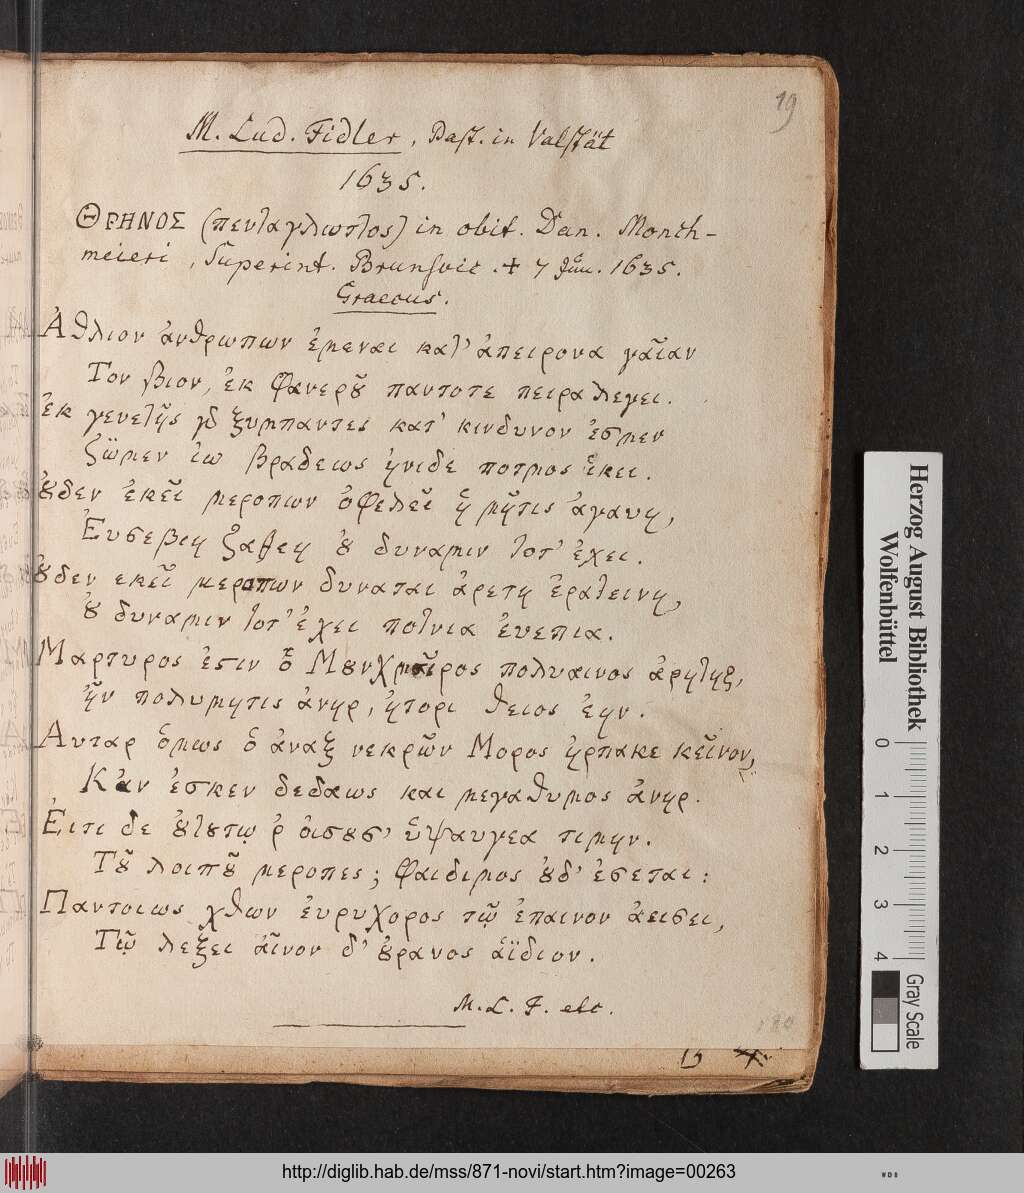 19
M. Lud. Fidler, Past. in Valstät
1635.
ΘΡΗΝΟΣ (πενταγλωττος) in obit. Dan. Monch-
meieri, Superint. Brunsvic. + 7 Jun. 1635.
Graecus.
Ἀθλιον ἀνθρωπων ἐμεναι κατ' ἀπειρονα γαῖαν
Τον βιον, ἐκ φανεροῦ παντοτε πειρα λεγει.
ἐκ γενετῆς γδ ξυμπαντες κατ' κινδυνον ἐσμεν
ζῶμεν ἐω βραδεως ἠνιδε ποτμος ἑκει.
ὀυδεν ἐκεῖ μεροπων ὀφελεῖ ἡ μῆτις ἀγαυη,
Ἐυσεβιη ζαθεη ὀυ δυναμιν τοτ' ἐχει.
ὀυδεν εκεῖ μεροπων δυναται ἀρετη ἐρατεινη,
ὀυ δυναμιν τοτ' ἐχει ποτνια ἐυεπια.
Μαρτυρος ἐστιν ὁ Μουνχμεῖρος πολυαινος ἀρητηξ,
ἦν πολυμητις ἀνηρ, ἠτορι θειος ἐην.
Αυταρ ὁμως ὁ ἀναξ νεκρῶν Μορος ἡρπακε κεῖνον,
Κἀν ἐσκεν δεδαως και μεγαθυμος ἀνηρ.
Ἐιτι δε ὀυτουτῳ ῥ ὀισους' ὑψαυγεα τιμην.
Τοῦ λοιποῦ μεροπες; φαιδιμος ὀυδ' ἐσεται:
Παντοιως χθων ἐυρυχορος τῷ ἐπαινον ἀεισει,
Τῷ λεξει αἶνον δ' ὀυρανος ἀΐδιον.
M. L. F. etc.
180
Herzog August Bibliothek
Wolfenbüttel
0 1 2 3 4
Gray Scale
http://diglib.hab.de/mss/871-novi/start.htm?image=00263